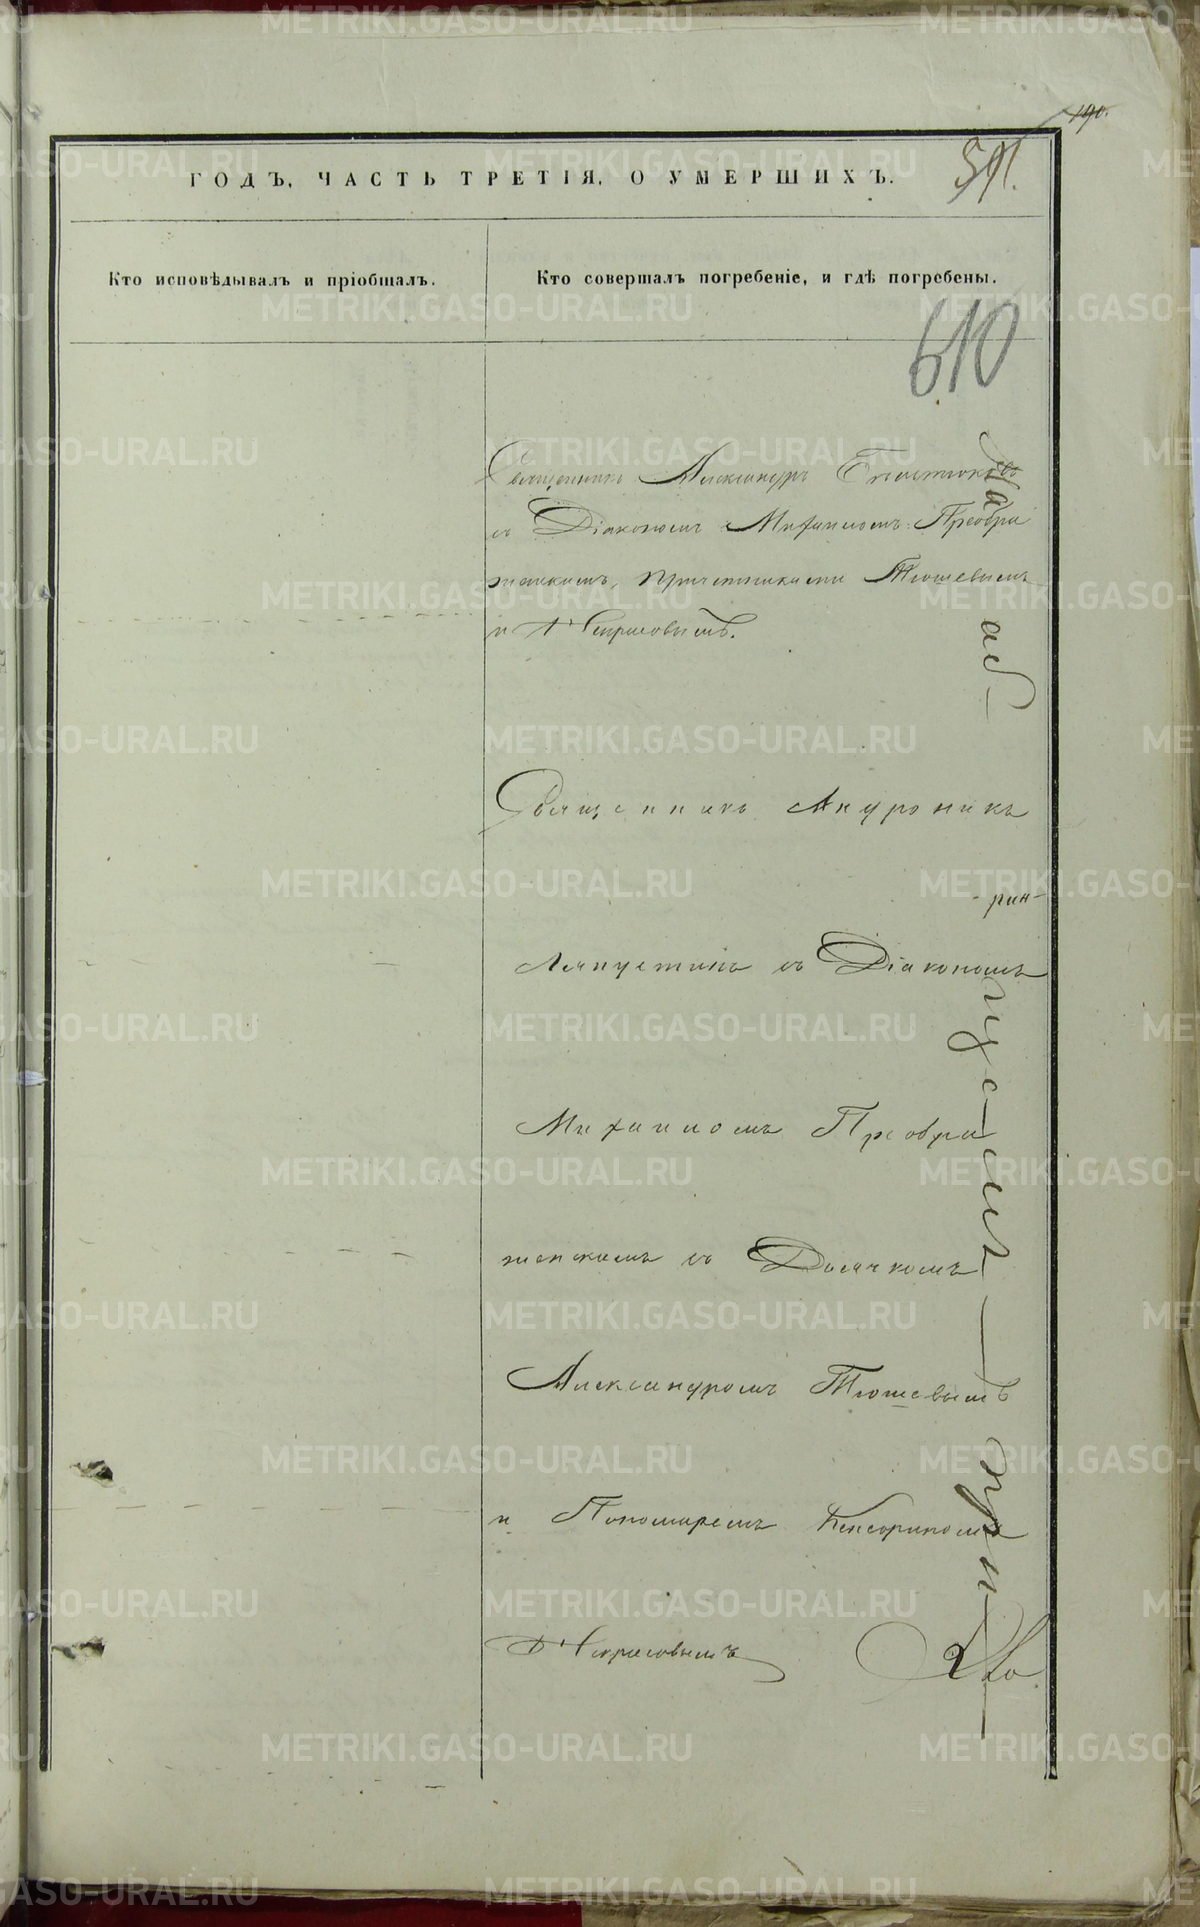 190.
591.
ГОДЪ, ЧАСТЬ ТРЕТІЯ, О УМЕРШИХЪ.
Кто исповѣдывалъ и пріобщалъ.
Кто совершалъ погребеніе, и гдѣ погребены.
610
Священникъ Александръ
съ Діакономъ Михаиломъ Преобра
женскимъ, причетниками Тюшевымъ
и Некрасовымъ.
Священникъ Андроникъ
рин-
Ляпустинъ съ Діакономъ
Михаиломъ Преобра
женскимъ съ Дьячкомъ
Александромъ Тюшевымъ
и Пономаремъ Кенсориномъ
Некрасовымъ
METRIKI.GASO-URAL.RU